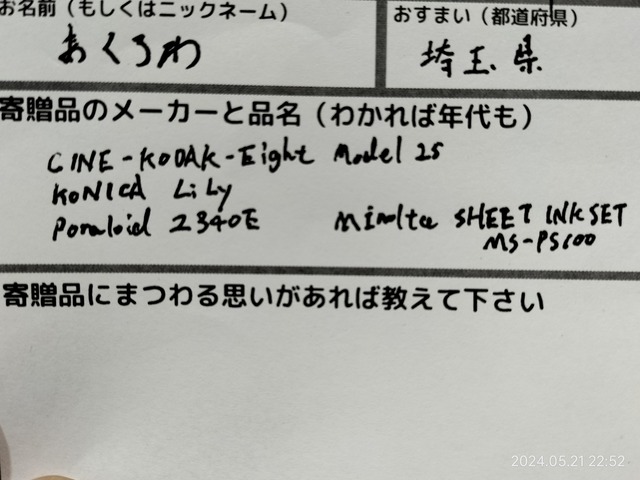 お名前（もしくはニックネーム）
おすまい（都道府県）
あくろわ
埼玉県
寄贈品のメーカーと品名（わかれば年代も）
CINE-KODAK-Eight Model 25
KONICA LiLy
Poraloid 2340E
Minolta SHEET INK SET
MS-PS100
寄贈品にまつわる思いがあれば教えて下さい
2024.05.21 22:52